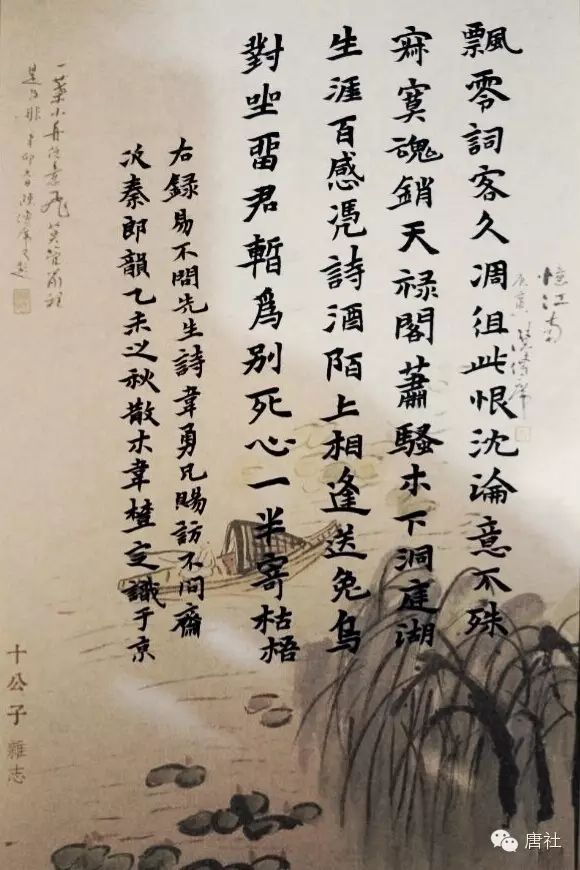 憶江南
庚寅
飄零詞客久凋徂此恨沈淪意不殊
寂寞魂銷天禄閣蕭騷木下洞庭湖
生涯百感凭詩酒陌上相逢送兔烏
對坐畱君暫爲别死心一半寄枯梧
右録易不問先生詩韋勇凡賜訪不間齋
次秦郎韻乙未之秋散木韋樝定識于京
一葉小舟任意飛笑
是與非辛卯春
十公子 雜志
唐社